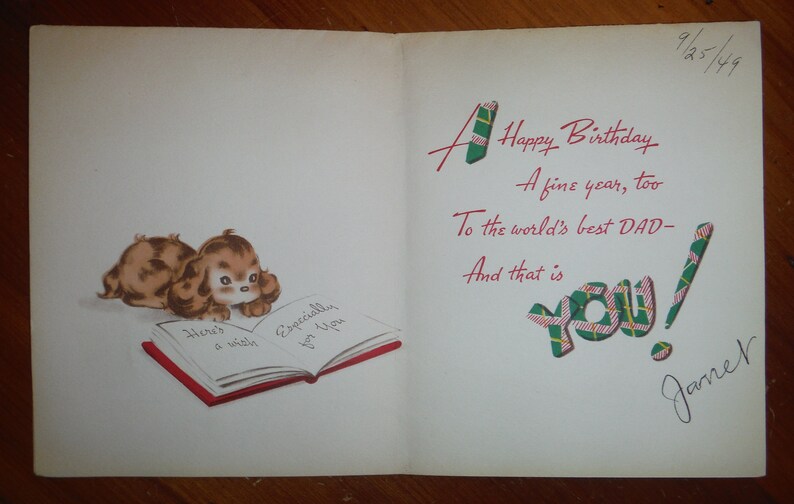 Here's
a wish
Especially
for You
9/25/49
A Happy Birthday
A fine year, too
To the world's best DAD-
And that is YOU!
Janet